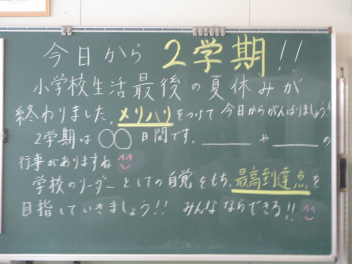 今日から 2学期!!
小学校生活最後の夏休みが
終わりました。メリハリをつけて今日からがんばりましょう!!
2学期は〇〇日間です。______や______の
行事がありますね^^
学校のリーダーとしての自覚をもち、最高到達点を
目指していきましょう!! みんなならできる!!^^